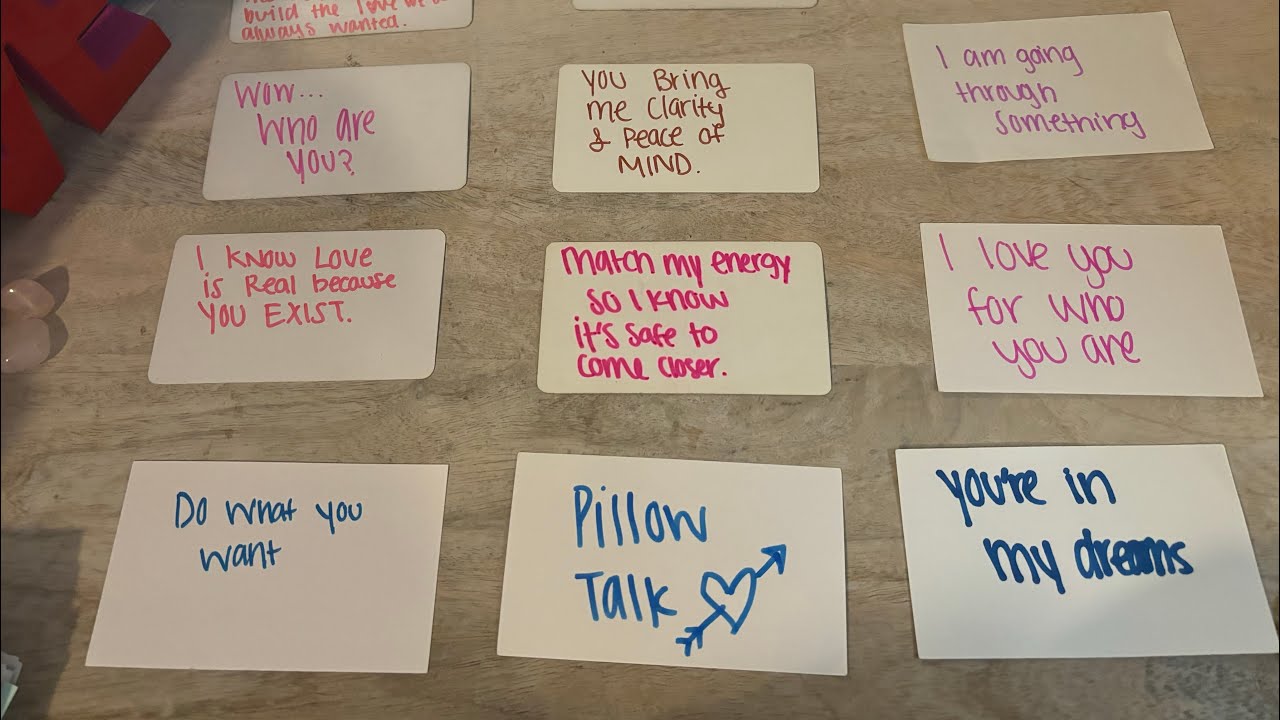 build the love we
always wanted.
Wow...
Who are
you?
You Bring
me Clarity
& Peace of
MIND.
I am going
through
something
I know Love
is Real because
You EXIST.
Match my energy
so I know
it's safe to
come closer.
I love you
for who
you are
Do what you
want
Pillow
Talk
you're in
my dreams